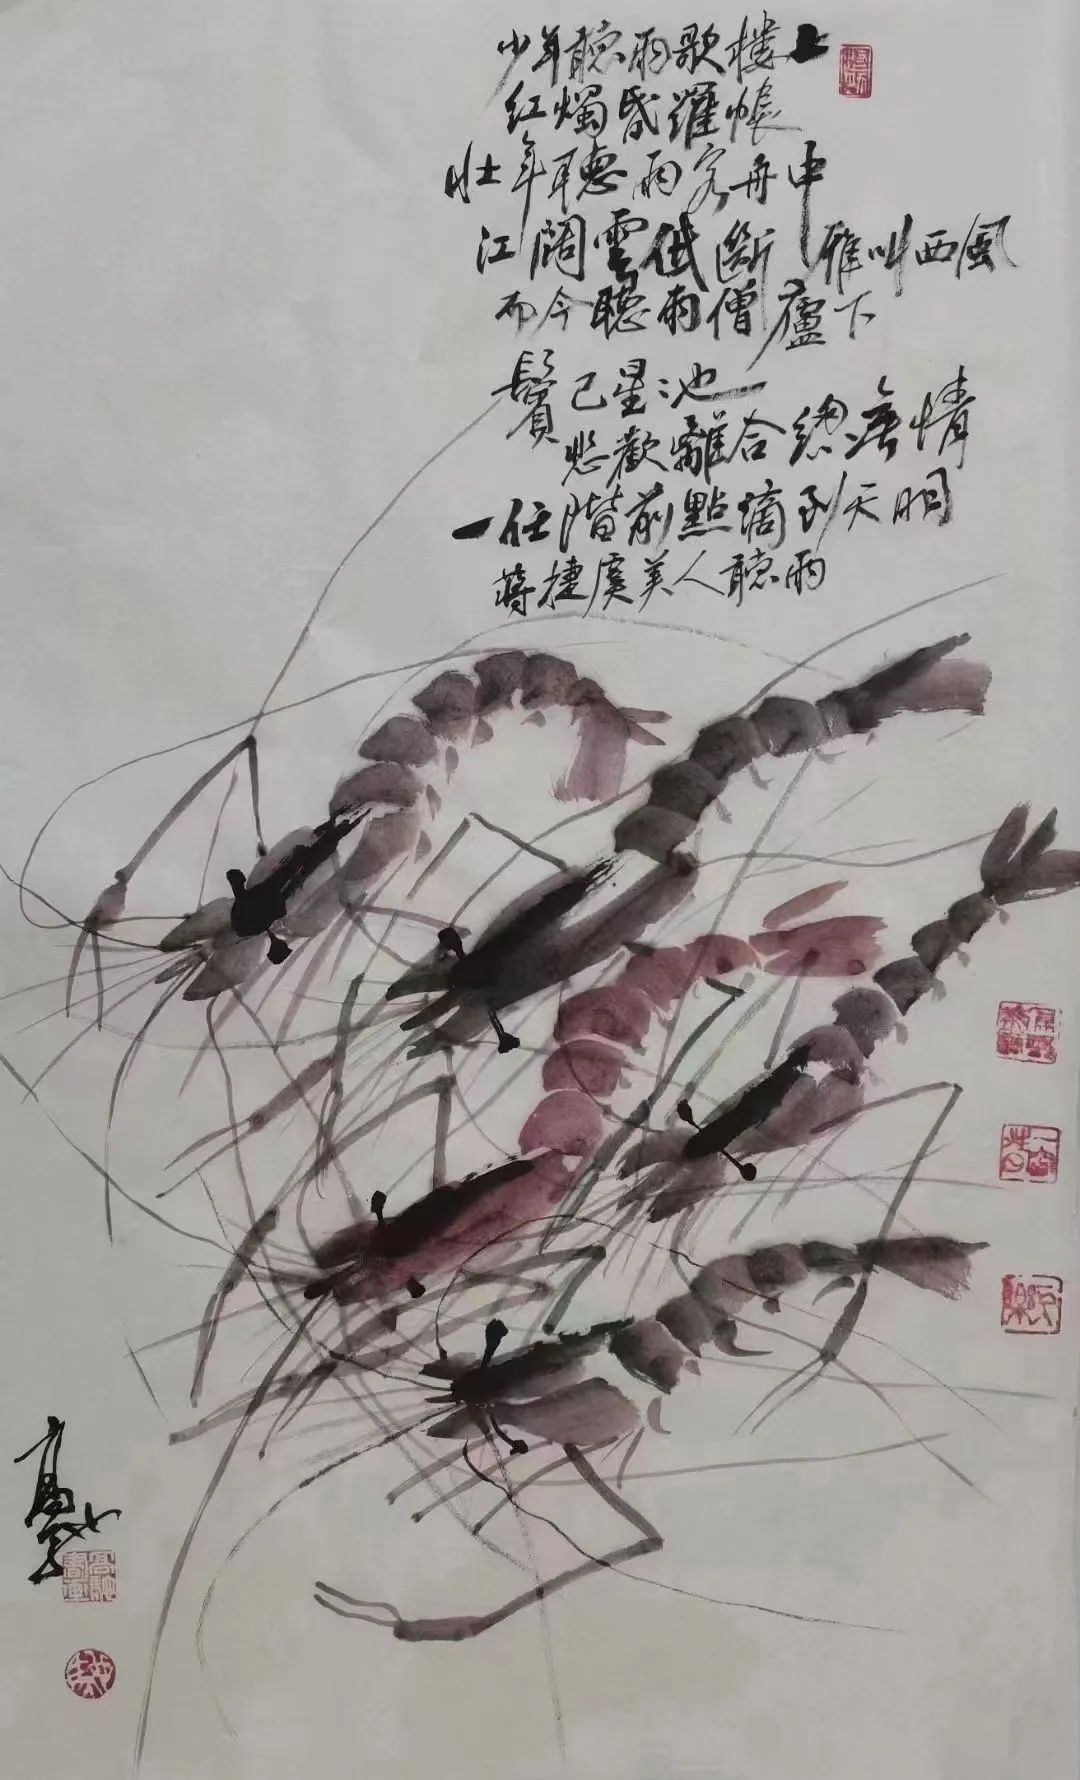 少年聽雨歌樓上
紅燭昏羅帳
壯年聽雨客舟中
江闊雲低斷雁叫西風
而今聽雨僧廬下
鬢已星星也
悲歡離合總無情
一任階前點滴到天明
蔣捷虞美人聽雨